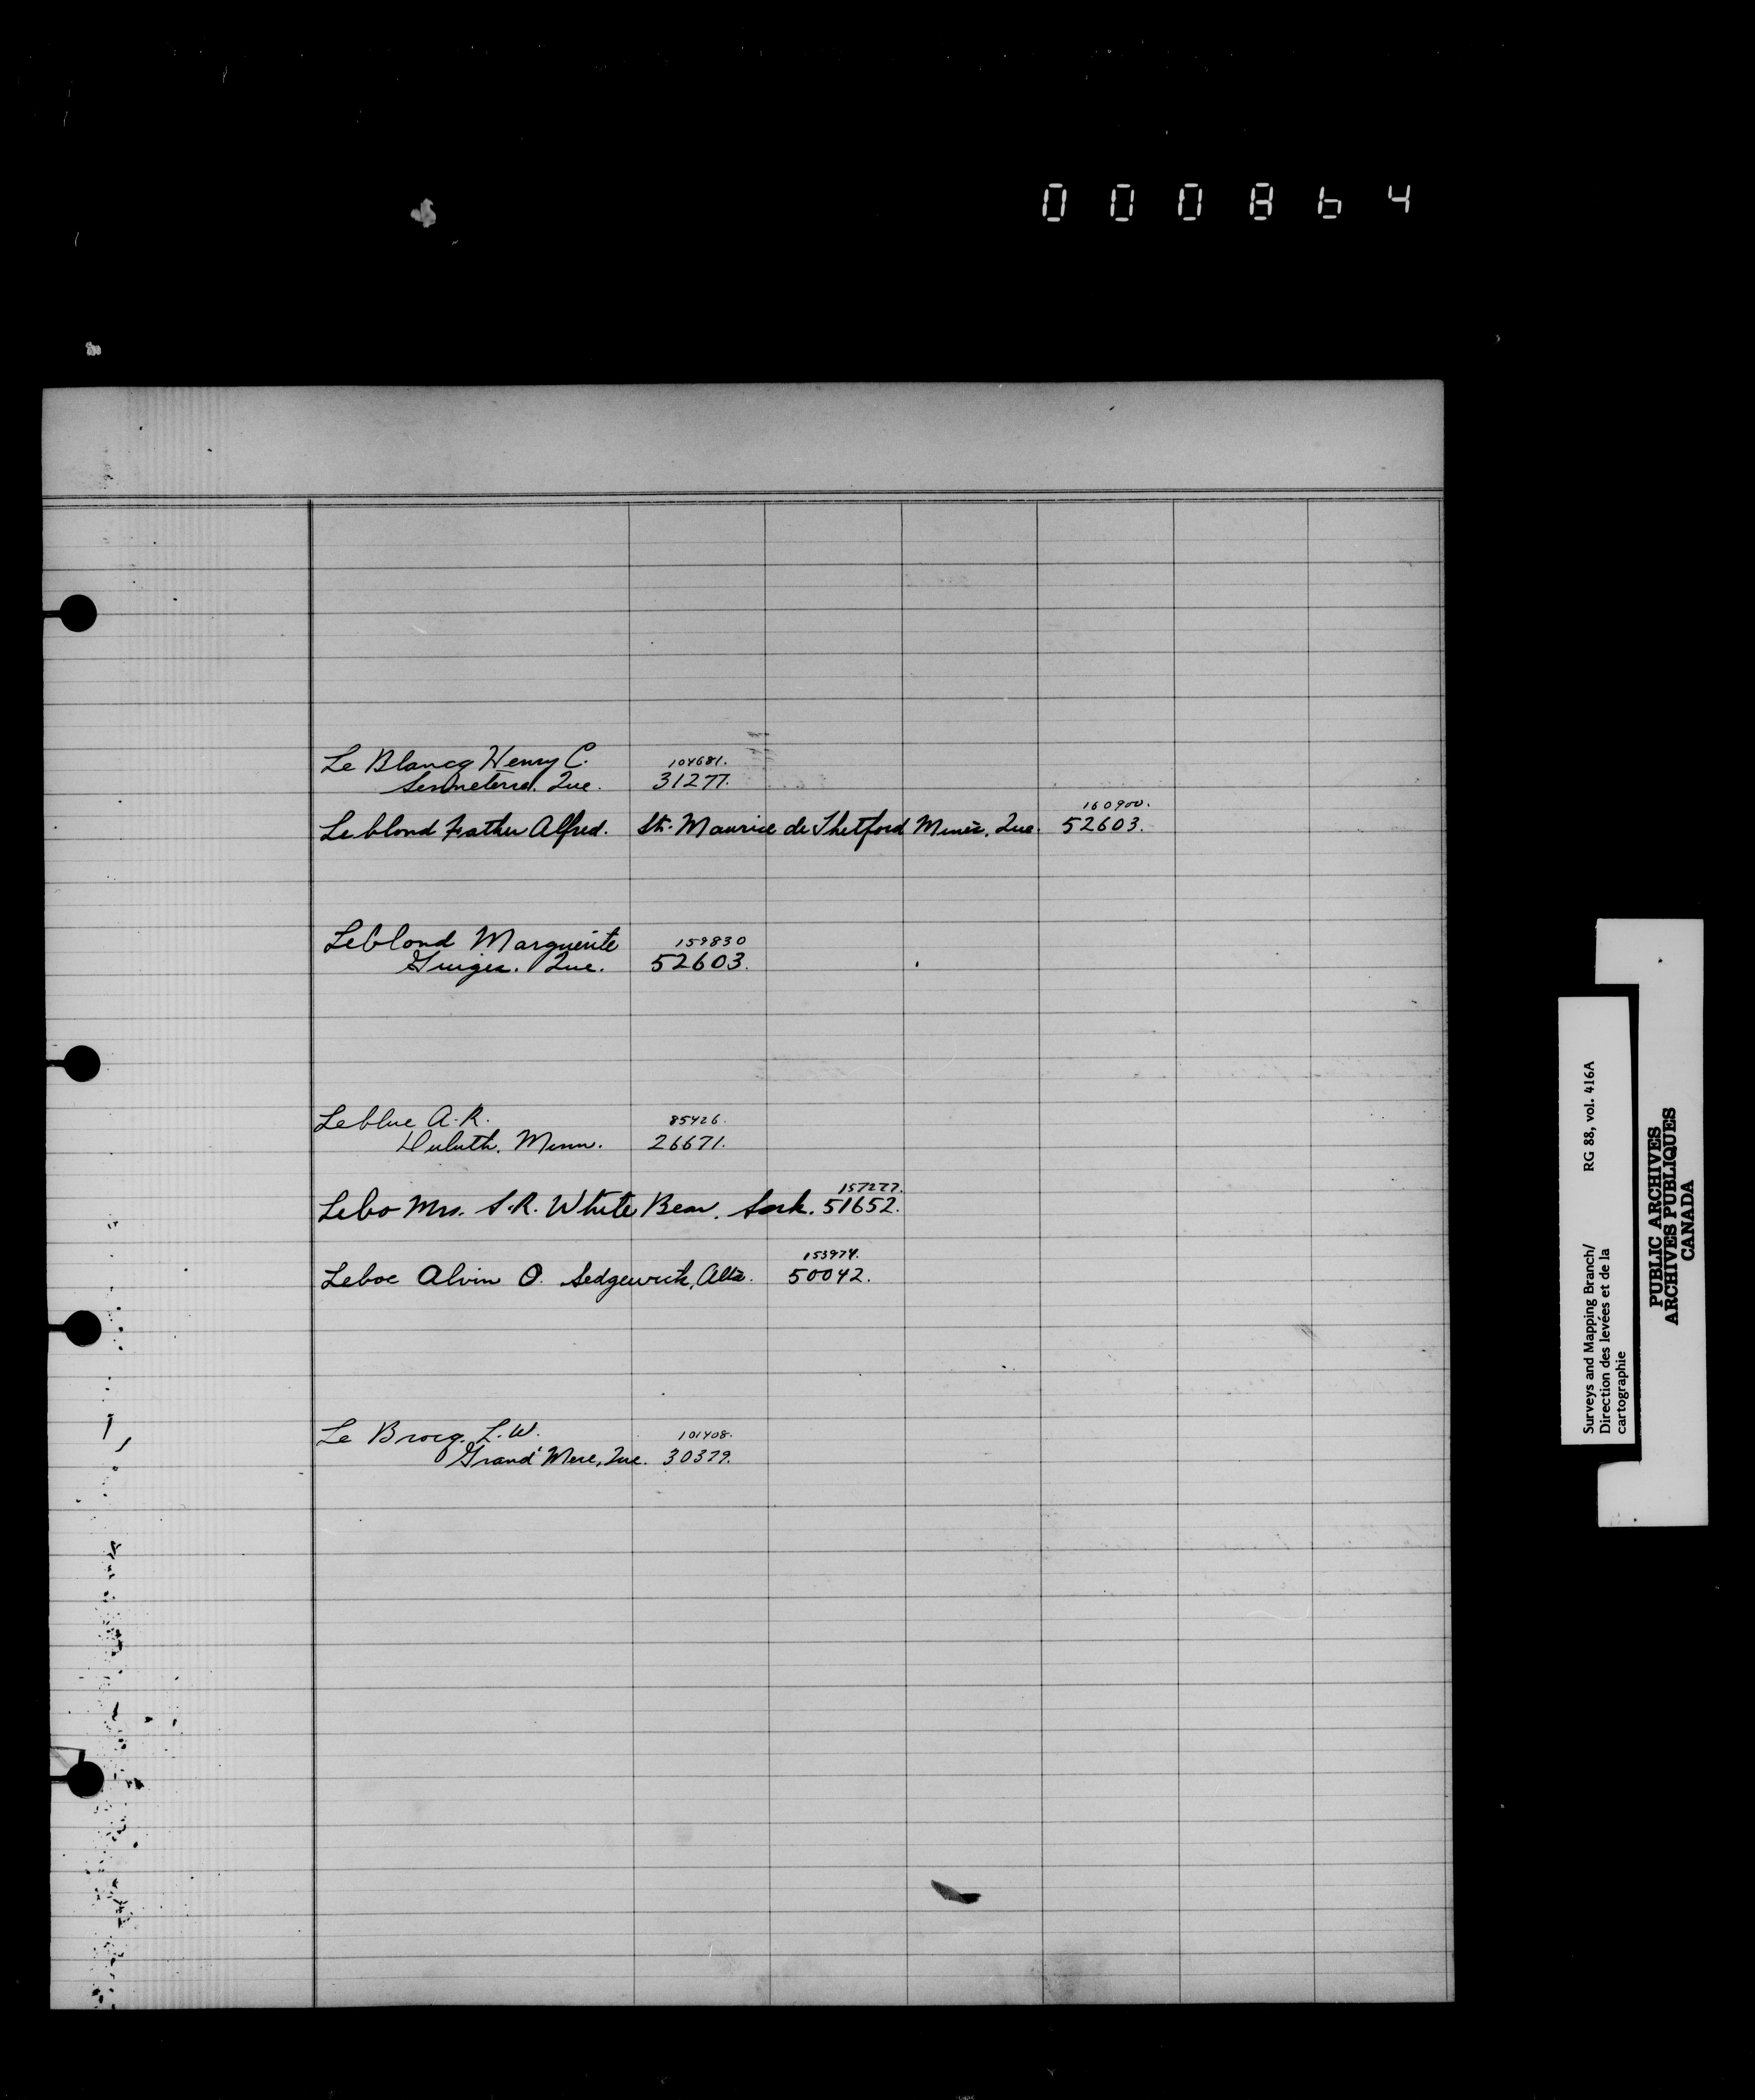 000864
Le Blancq Henry C. 104681.
Senneterre. Que. 31277.
160900.
Leblond Father Alfred. St. Maurice de Thetford Mines, Que. 52603.
Leblond Marguerite 159830
Que. 52603.
Leblue A. R. 85426.
Duluth, Minn. 26671.
157277.
Lebo Mrs. S. R. White Bear. Sask. 51652.
153974.
Leboe Alvin O. Sedgewick, Alta. 50042.
Le Brocq, L. W. 101408.
Grand' Mere, Que. 30379.
Surveys and Mapping Branch/ RG 88, vol. 416A
Direction des levées et de la
cartographie
PUBLIC ARCHIVES
ARCHIVES PUBLIQUES
CANADA